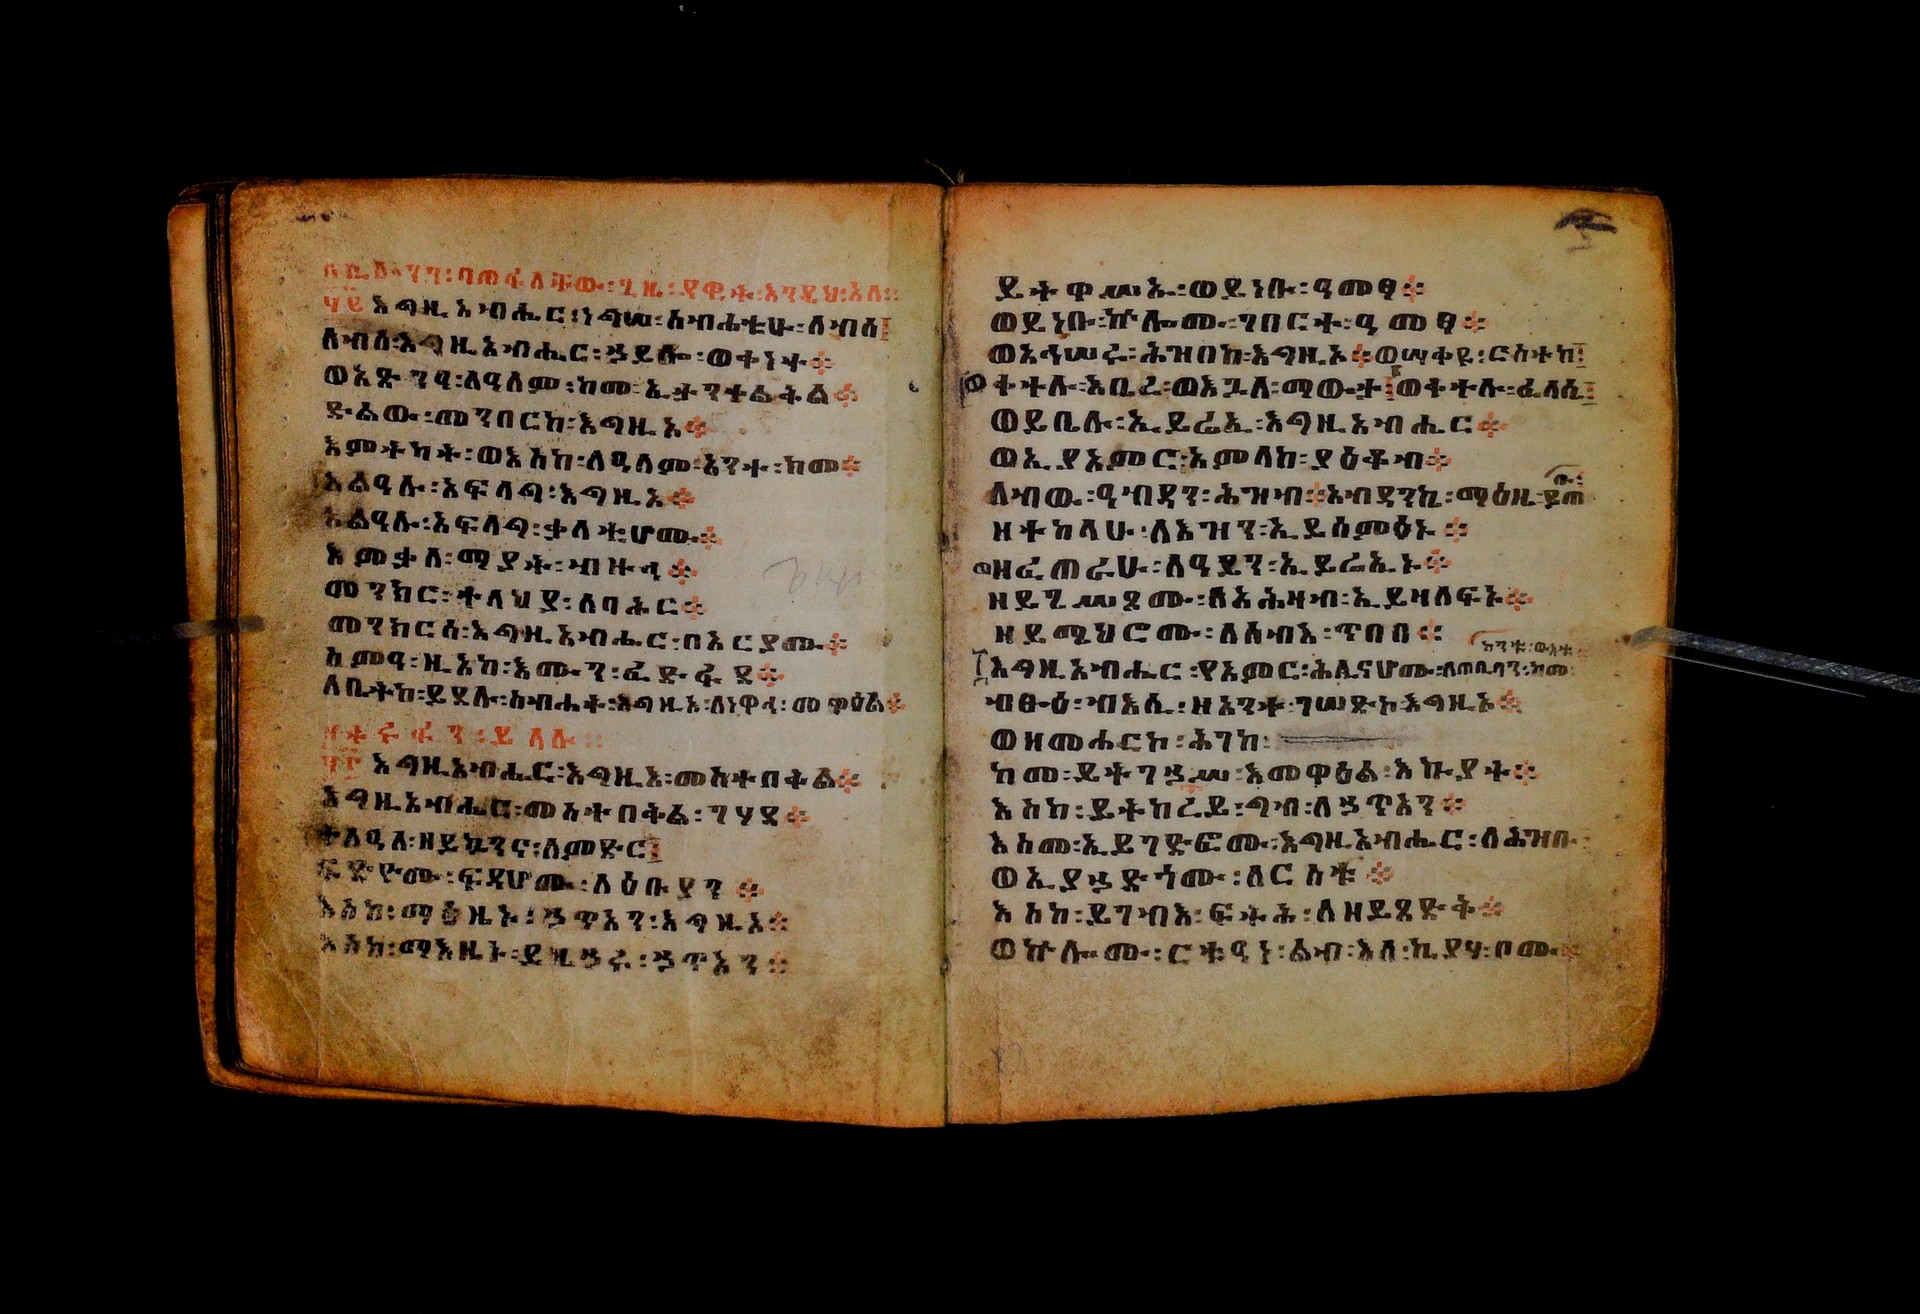 ፺፪ እግዚአብሔር፡ነግሠ፡ስብሐቲሁ፡ለብሰ፤
ለብሰ፡እግዚአብሔር፡ኃይሎ፡ወቀነተ።
ወአጽንዓ፡ለዓለም፡ከመ፡ኢታንቀልቅል።
ድልው፡መንበርከ፡እግዚአ።
እምትካት፡ወእስከ፡ለዓለም፡አንተ፡ክመ።
አልዓሉ፡አፍላግ፡እግዚአ።
አልዓሉ፡አፍላግ፡ቃላቲሆሙ።
እምቃለ፡ማያት፡ብዙኅ።
መንክር፡ተላህያ፡ለባሕር።
መንክርሰ፡እግዚአብሔር፡በአርያሙ።
ስምዓ፡ዚአከ፡እሙን፡ፈድፋደ።
ለቤትከ፡ይደሉ፡ስብሐት፡እግዚአ፡ለነዋኅ፡መዋዕል።
፺፫ እግዚአብሔር፡እግዚአ፡መስተበቅል።
እግዚአብሔር፡መስተበቅል፡ገሃደ።
ተለዓለ፡ዘይኴንና፡ለምድር፤
ፍድዮሙ፡ፍዳሆሙ፡ለዕቡያን።
እስከ፡ማዕዜኑ፡ኃጥአን፡እግዚአ።
እስከ፡ማእዜኑ፡ይዜኃሩ፡ኃጥአን።
ይትዋሥኡ፡ወይነቡ፡ዓመፃ።
ወይነቡ፡ኵሎሙ፡ገበርተ፡ዓመፃ።
ወአኅሠሩ፡ሕዝበከ፡እግዚአ።ወሣቀዩ፡ርስተከ፤
ቀተሉ፡እቤረ፡ወእጓለ፡ማውታ፤ወቀተሉ፡ፈላሴ፤
ወይቤሉ፡ኢይሬኢ፡እግዚአብሔር።
ወኢያአምር፡አምላከ፡ያዕቆብ።
ለብዉ፡ዓብዳን፡ሕዝብ።አብዳንኪ፡ማዕዜ፡ይጠ
ዘተከላሁ፡ለእዝን፡ኢይሰምዕኑ።
ዘፈጠራሁ፡ለዓይን፡ኢይሬኢኑ።
ዘይጌሥጾሙ፡ለአሕዛብ፡ኢይዛለፍኑ።
ዘይሜህሮሙ፡ለሰብእ፡ጥበበ።
እግዚአብሔር፡የአምር፡ሕሊናሆሙ፡ለጠቢባን፡ከመ
ብፁዕ፡ብእሲ፡ዘአንተ፡ገሠጽኮ፡እግዚአ።
ወዘመሐርኮ፡ሕገከ፡
ከመ፡ይትገኃሥ፡እመዋዕል፡እኩያት።
እስከ፡ይትከረይ፡ግብ፡ለኃጥእን።
እስመ፡ኢይገድፎሙ፡እግዚአብሔር፡ለሕዝቡ።
ወኢያኃድጎሙ፡ለርስቱ።
እስከ፡ይገብእ፡ፍትሕ፡ለዘይጸድቅ።
ወኵሎሙ፡ርቱዓነ፡ልብ፡እለ፡ኪያሃ፡ቦሙ።